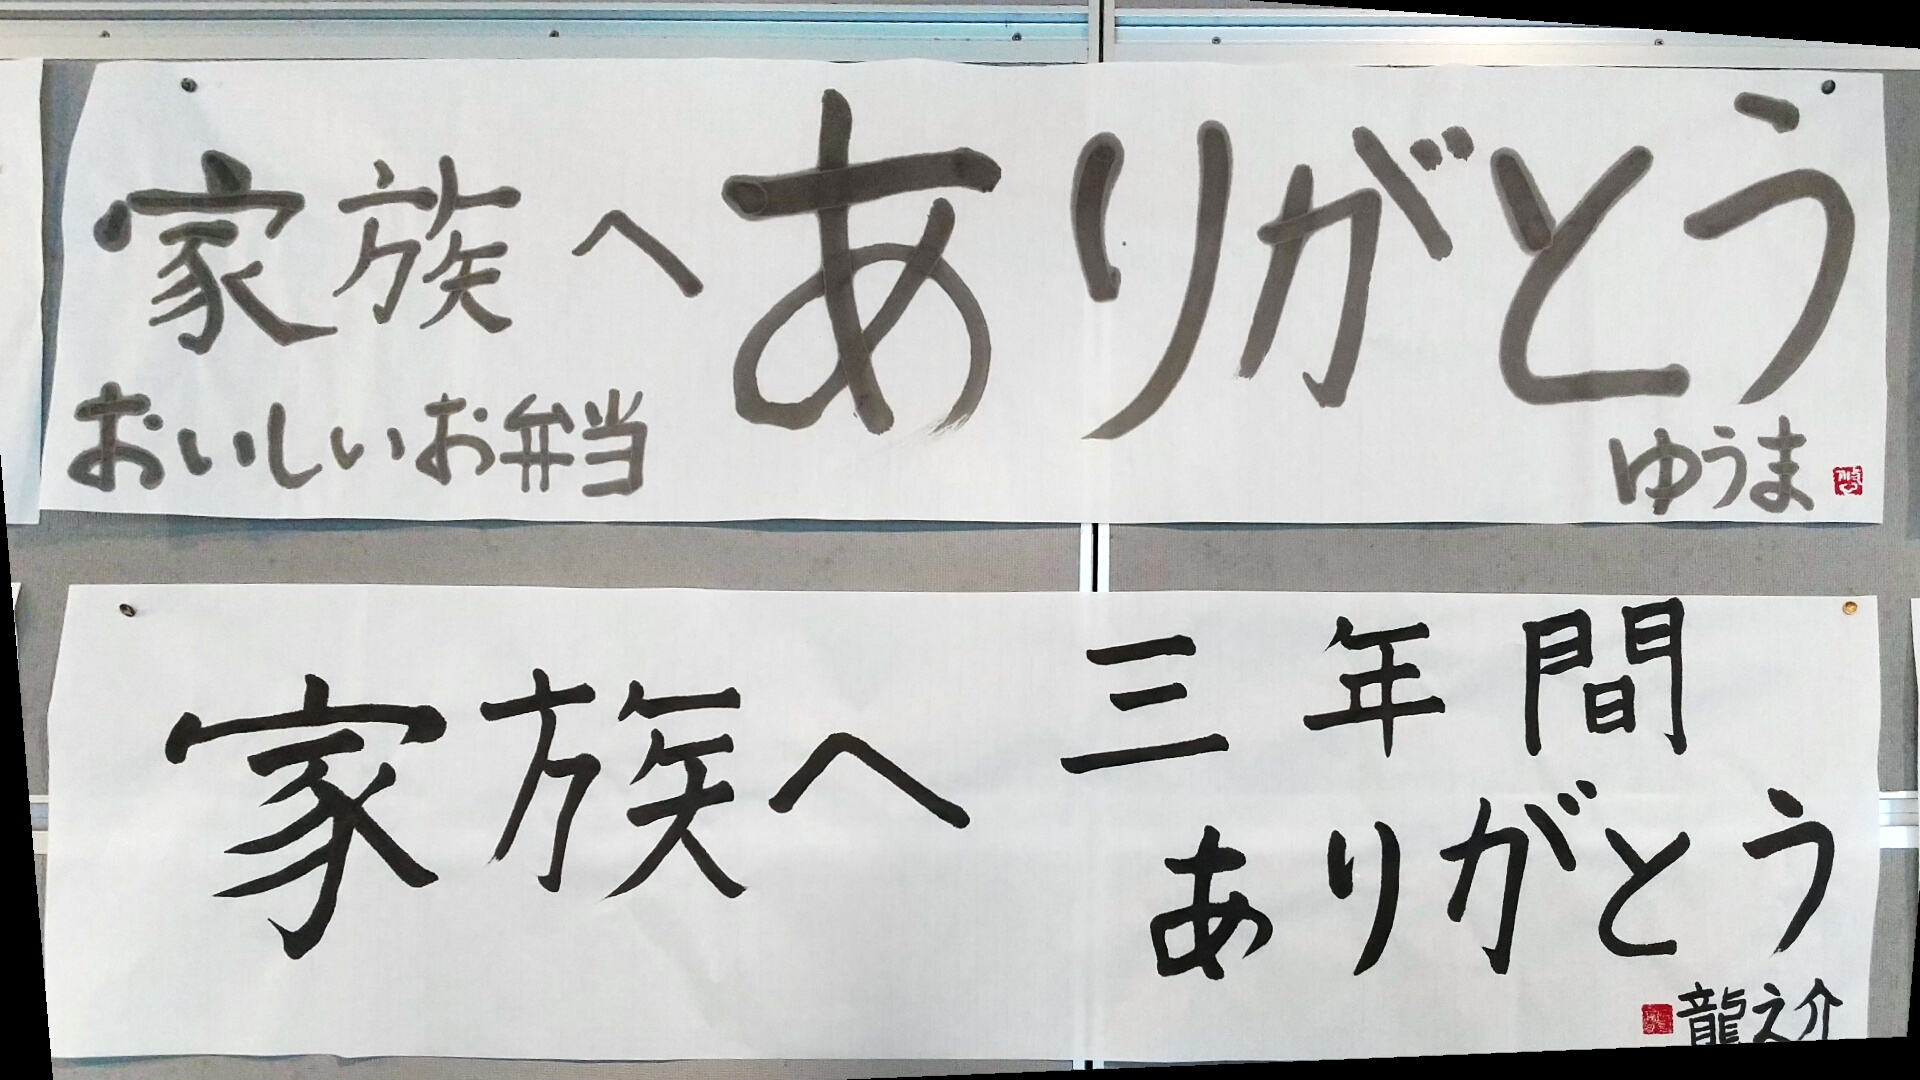 家族へ
おいしいお弁当
ありがとう
ゆうま
家族へ
三年間
ありがとう
龍之介